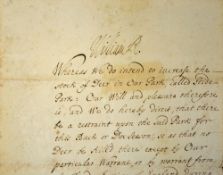 William R.
Whereas We do intend to increase the
Stock of Deer in Our Park called Hide
Park: Our Will and pleasure therefore
is, and We do hereby direct, that there
be a restraint upon the said Park for
this Buck or Doe Season, so as that no
Deer be killed there except by Our
particular Warrant, or by warrant from